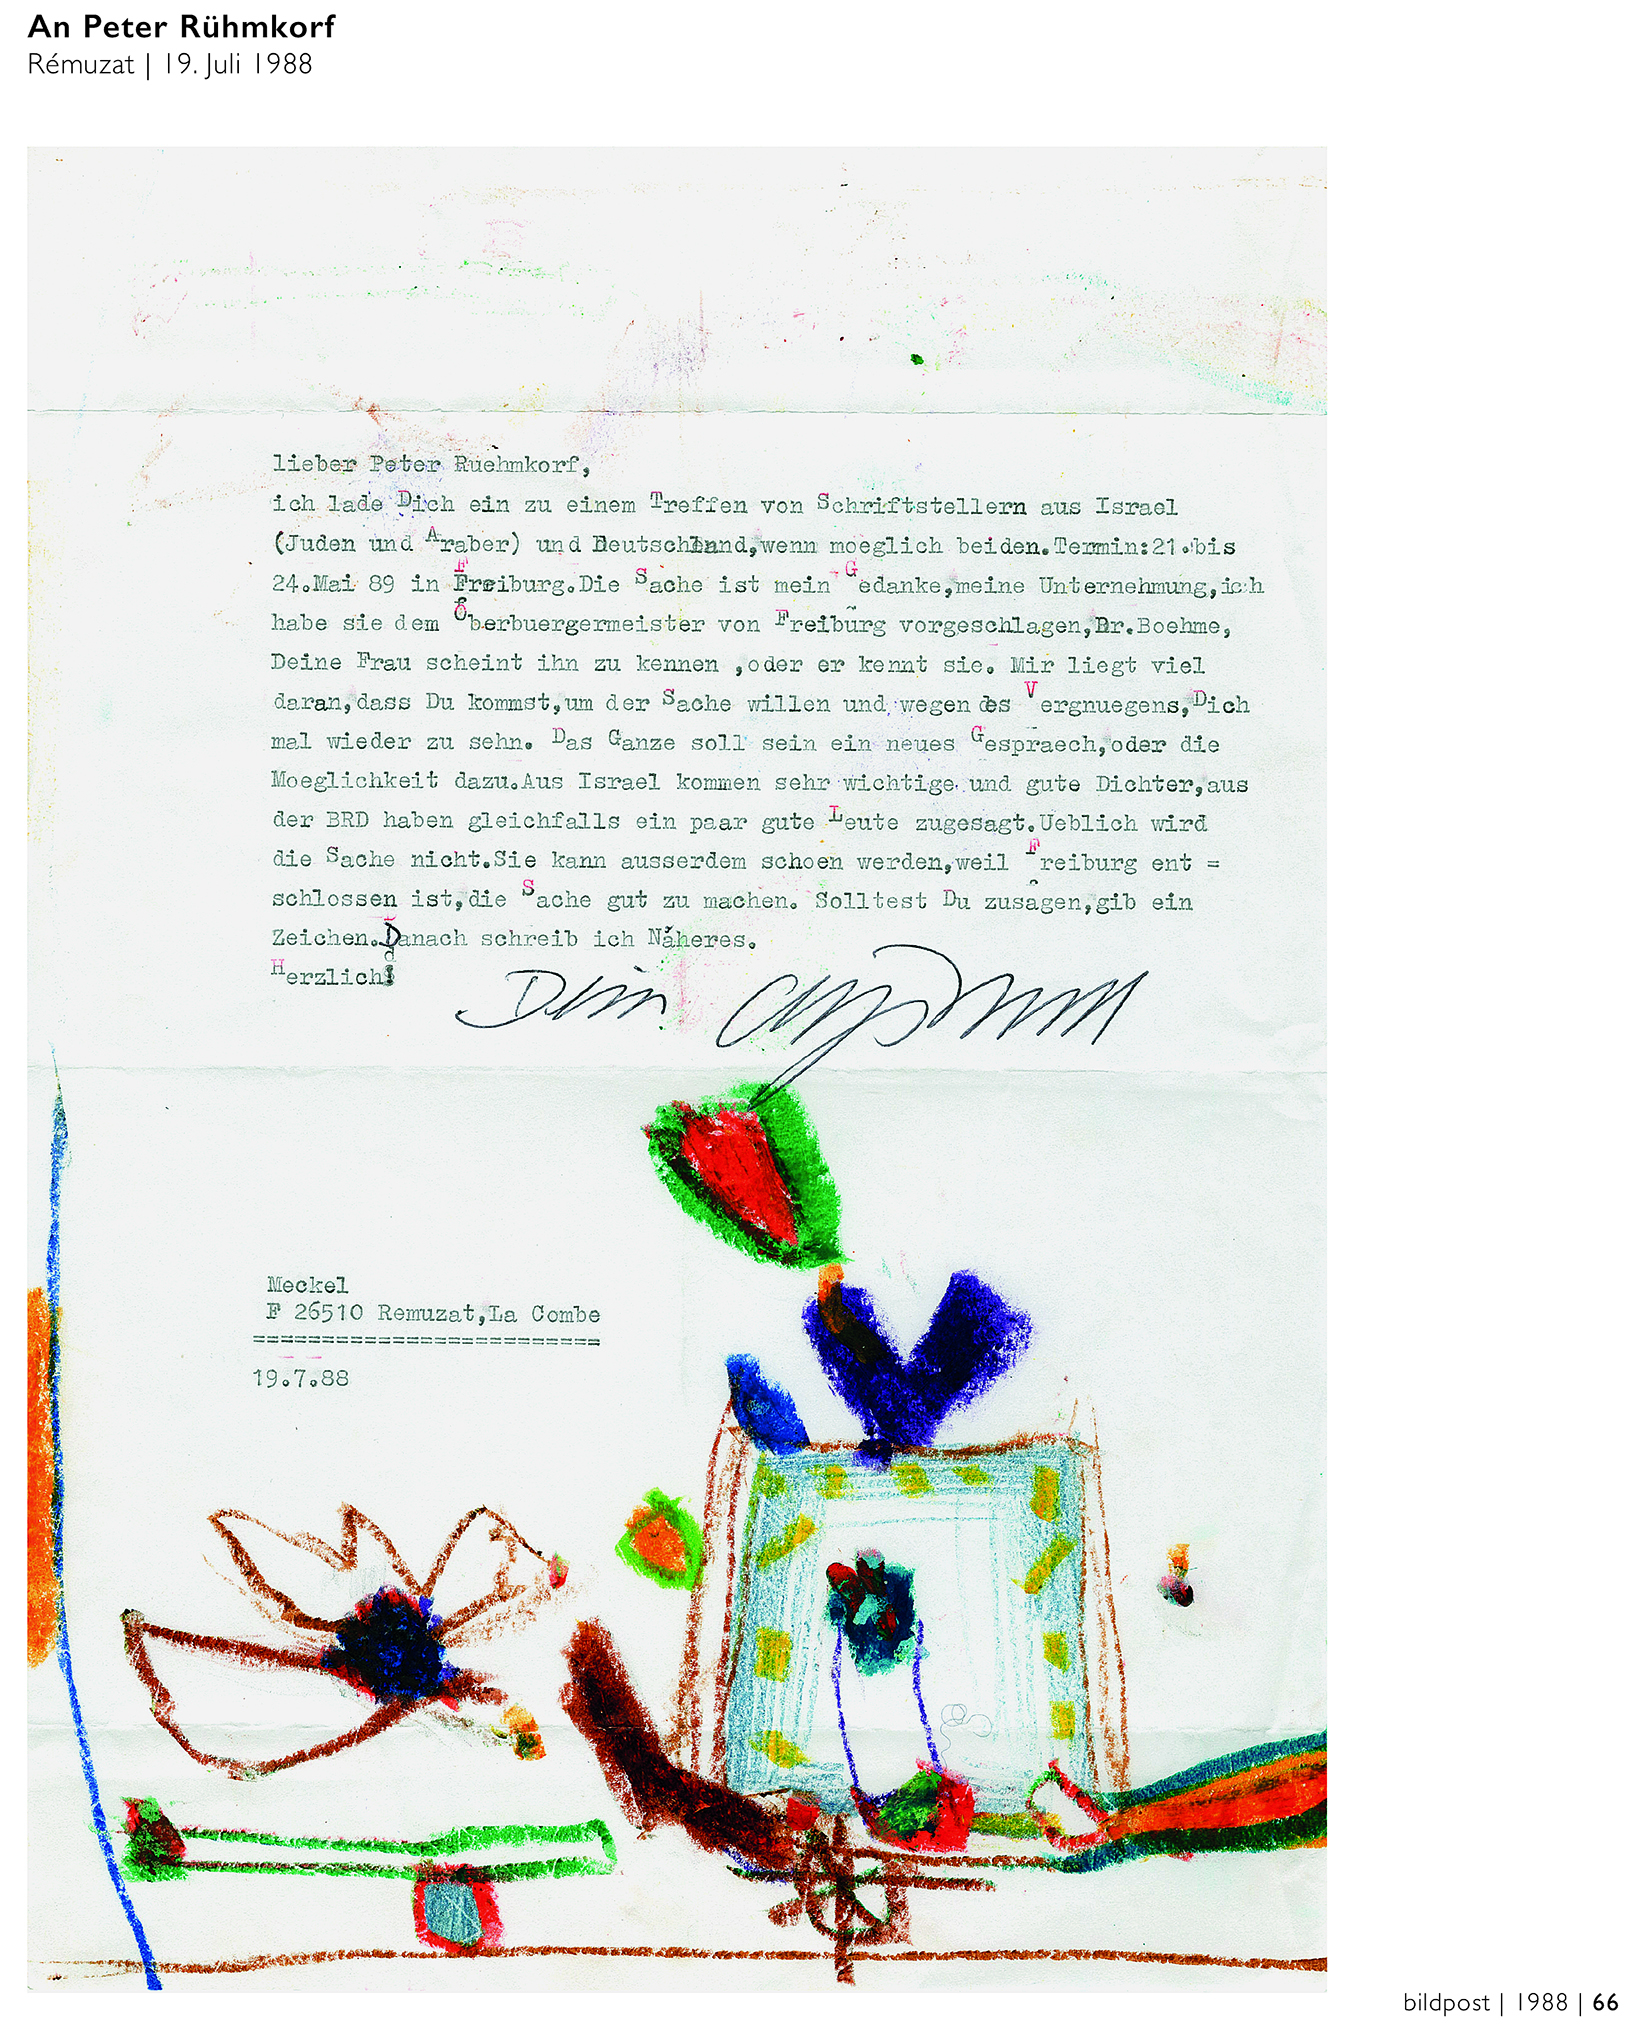 An Peter Rühmkorf
Rémuzat | 19. Juli 1988
lieber Peter Ruehmkorf,
ich lade Dich ein zu einem Treffen von Schriftstellern aus Israel
(Juden und Araber) und Deutschland,wenn moeglich beiden.Termin:21.bis
24.Mai 89 in Freiburg.Die Sache ist mein Gedanke,meine Unternehmung,ich
habe sie dem Oberbuergermeister von Freiburg vorgeschlagen,Dr.Boehme,
Deine Frau scheint ihn zu kennen ,oder er kennt sie. Mir liegt viel
daran,dass Du kommst,um der Sache willen und wegen des Vergnuegens,Dich
mal wieder zu sehn. Das Ganze soll sein ein neues Gespraech,oder die
Moeglichkeit dazu.Aus Israel kommen sehr wichtige und gute Dichter,aus
der BRD haben gleichfalls ein paar gute Leute zugesagt.Ueblich wird
die Sache nicht.Sie kann ausserdem schoen werden,weil Freiburg ent =
schlossen ist,die Sache gut zu machen. Solltest Du zusagen,gib ein
Zeichen.Danach schreib ich Näheres.
Herzlich!
Dein
Meckel
F 26510 Remuzat,La Combe
=========================
19.7.88
bildpost | 1988 | 66